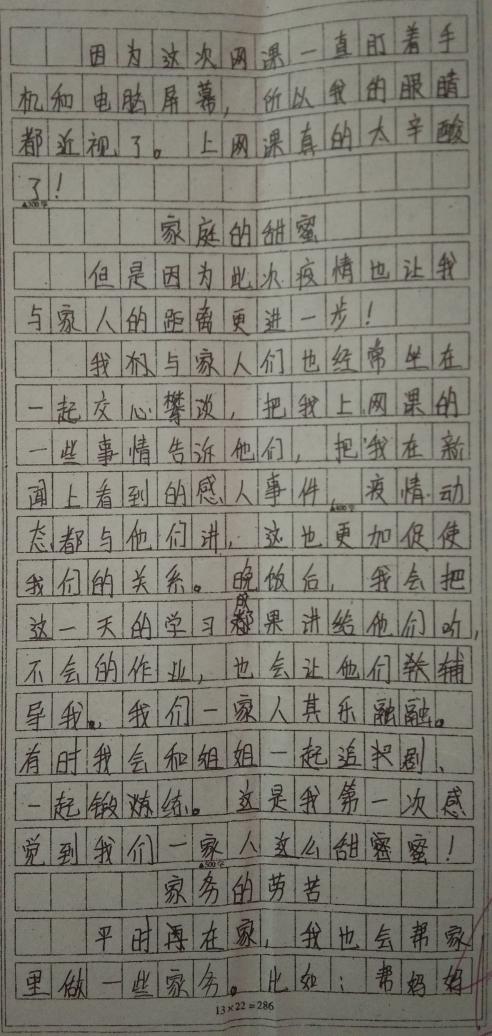 因为这次网课一直盯着手
机和电脑屏幕，所以我的眼睛
都近视了。上网课真的太辛酸
了！
家庭的甜蜜
但是因为此次疫情也让我
与家人的距离更进一步！
我们与家人们也经常坐在
一起交心攀谈，把我上网课的
一些事情告诉他们，把我在新
闻上看到的感人事件，疫情动
态都与他们讲，这也更加促使
我们的关系。晚饭后，我会把
这一天的学习成果讲给他们听，
不会的作业，也会让他们辅
导我。我们一家人其乐融融。
有时我会和姐姐一起追剧、
一起锻炼。这是我第一次感
觉到我们一家人这么甜蜜！
▲500字
家务的劳苦
平时再在家，我也会帮家
里做一些家务。比如：帮妈妈
13×22=286